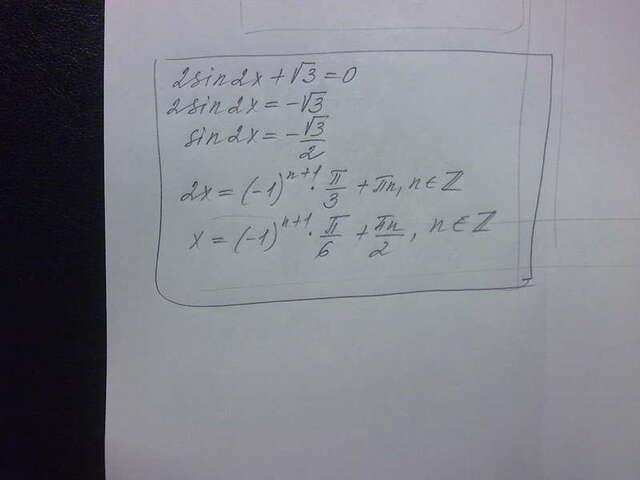 2sin2x + √3 = 0
2sin2x = -√3
sin2x = -√3/2
2x = (-1)^(n+1) · π/3 + πn, n ∈ ℤ
x = (-1)^(n+1) · π/6 + πn/2, n ∈ ℤ